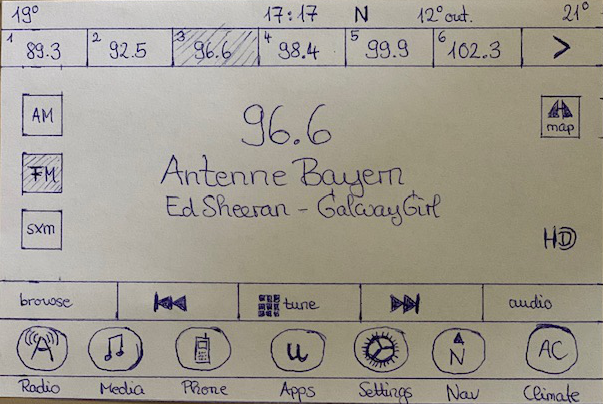 19° 17:17 N 12° out. 21°
1 89.3 2 92.5 3 96.6 4 98.4 5 99.9 6 102.3 >
AM
96.6
map
FM
Antenne Bayern
Ed Sheeran - Galway Girl
sxm
HD
browse tune audio
A u N AC
Radio Media Phone Apps Settings Nav Climate